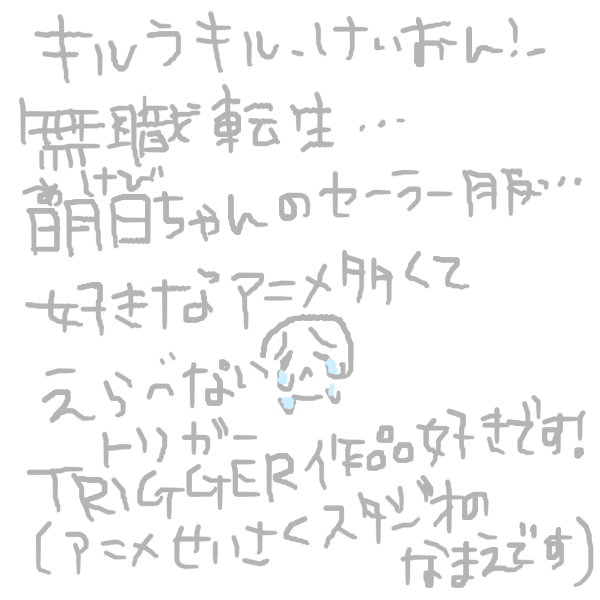 キルラキル、けいおん!、
無職転生…
あけび
明日ちゃんのセーラー服…
好きなアニメ多くて
えらべない
トリガー
TRIGGER作品好きです!
(アニメせいさくスタジオの
なまえです)